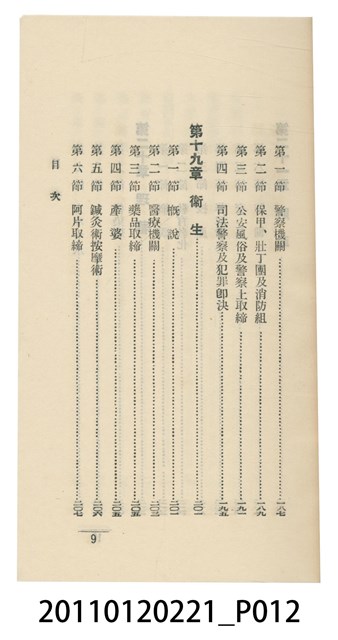 第一節 警察機關……一八七
第二節 保甲、壯丁團及消防組……一八九
第三節 公安風俗及警察上取締……一九一
第四節 司法警察及犯罪卽決……一九五
第十九章 衛生……二〇一
第一節 概說……二〇一
第二節 醫療機關……二〇三
第三節 藥品取締……二〇五
第四節 產婆……二〇五
第五節 鍼灸術按摩術……二〇六
第六節 阿片取締……二〇七
目次
9
20110120221_P012